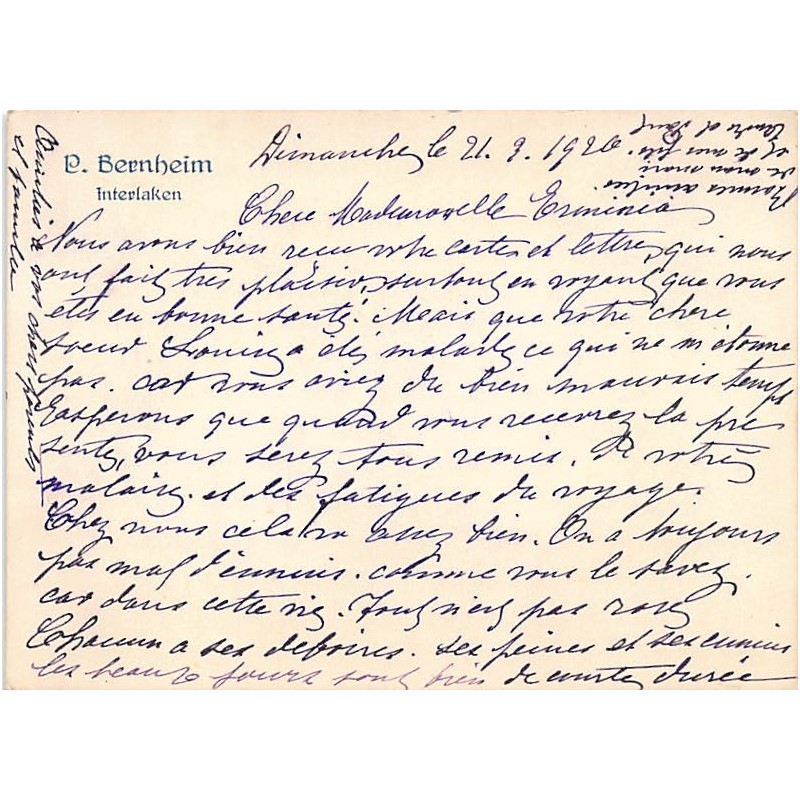 P. Bernheim
Interlaken
Dimanche, le 21. 1926
Chere Mademoiselle Erminia
Nous avons bien recu votre cartes et lettre, qui nous
ont fait tres plaisir, surtout en voyant que vous
etes en bonne santé. Mais que votre chere
soeur Louise a été malade ce qui ne m'étonne
pas. car vous aviez du bien mauvais temps
Easperons que quand vous recevrez la pre
sente, vous serez tous remis. de votre
malaise. et des fatigues du voyage.
Chez nous cela va assez bien. On a toujours
pas mal d'ennuis. comme vous le savez.
car dans cette vie. Tout n'est pas rose
Chacun a ses deboires. ses peines et ses ennuis
les beaux jours sont bien de courte durée
Amitiés a vos chers parents
et famille
Bonnes amities
de mon mari
et de mes fils